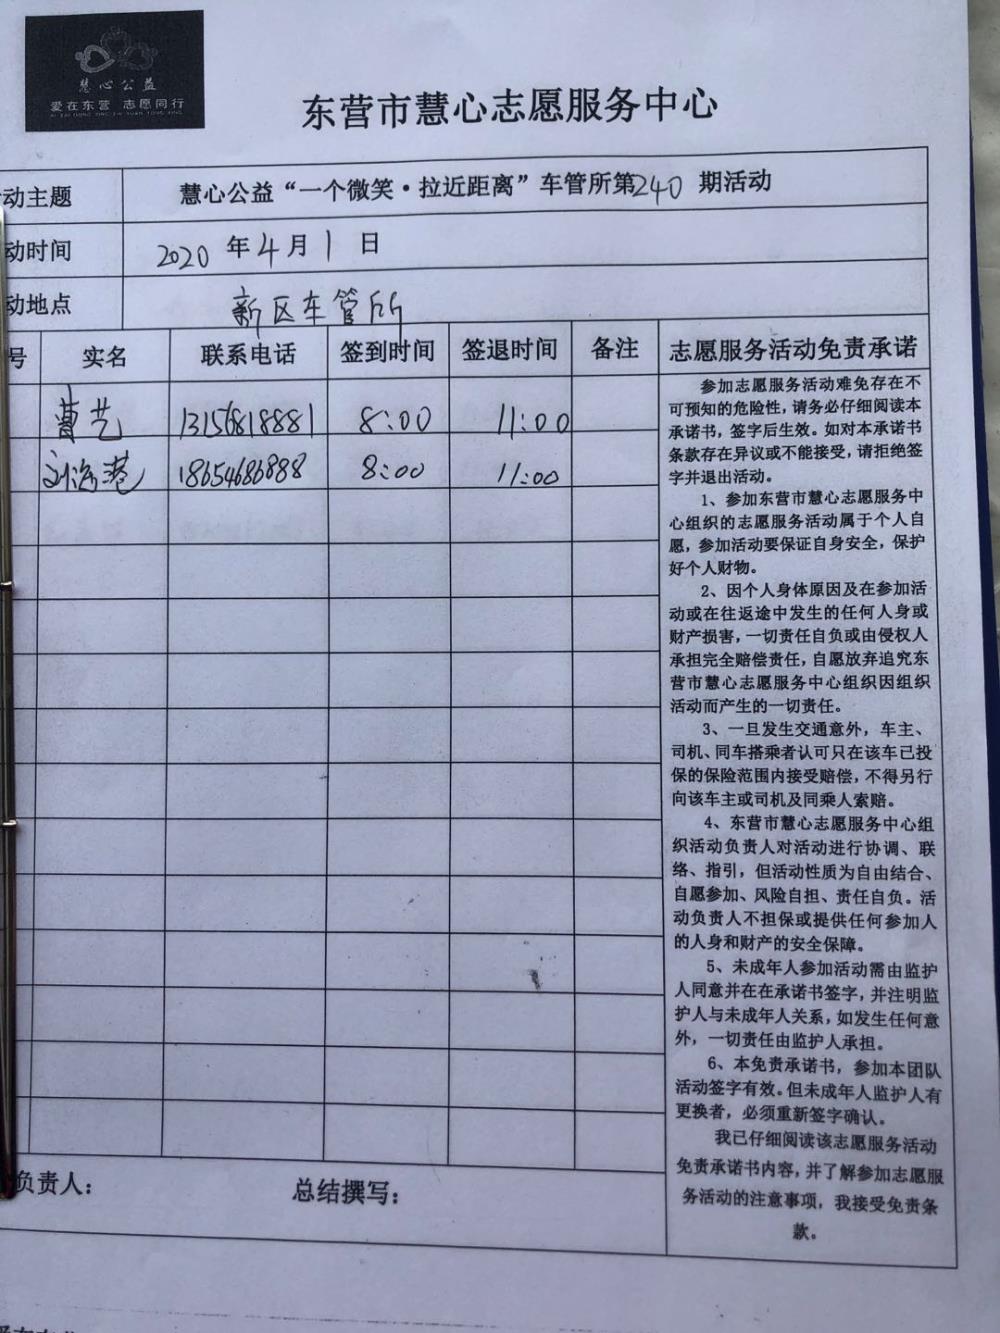 慧心公益
爱在东营 志愿同行
东营市慧心志愿服务中心
动主题 慧心公益“一个微笑·拉近距离”车管所第240期活动
动时间 2020年4月1日
动地点 新区车管所
号 实名 联系电话 签到时间 签退时间 备注 志愿服务活动免责承诺
曹艺 13156818881 8:00 11:00
刘 18654686888 8:00 11:00
参加志愿服务活动难免存在不
可预知的危险性，请务必仔细阅读本
承诺书，签字后生效。如对本承诺书
条款存在异议或不能接受，请拒绝签
字并退出活动。
1、参加东营市慧心志愿服务中
心组织的志愿服务活动属于个人自
愿，参加活动要保证自身安全，保护
好个人财物。
2、因个人身体原因及在参加活
动或在往返途中发生的任何人身或
财产损害，一切责任自负或由侵权人
承担完全赔偿责任，自愿放弃追究东
营市慧心志愿服务中心组织因组织
活动而产生的一切责任。
3、一旦发生交通意外，车主、
司机、同车搭乘者认可只在该车已投
保的保险范围内接受赔偿，不得另行
向该车主或司机及同乘人索赔。
4、东营市慧心志愿服务中心组
织活动负责人对活动进行协调、联
络、指引，但活动性质为自由结合、
自愿参加、风险自担、责任自负。活
动负责人不担保或提供任何参加人
的人身和财产的安全保障。
5、未成年人参加活动需由监护
人同意并在在承诺书签字，并注明监
护人与未成年人关系，如发生任何意
外，一切责任由监护人承担。
6、本免责承诺书，参加本团队
活动签字有效。但未成年人监护人有
更换者，必须重新签字确认。
我已仔细阅读该志愿服务活动
免责承诺书内容，并了解参加志愿服
务活动的注意事项，我接受免责条
款。
负责人： 总结撰写：